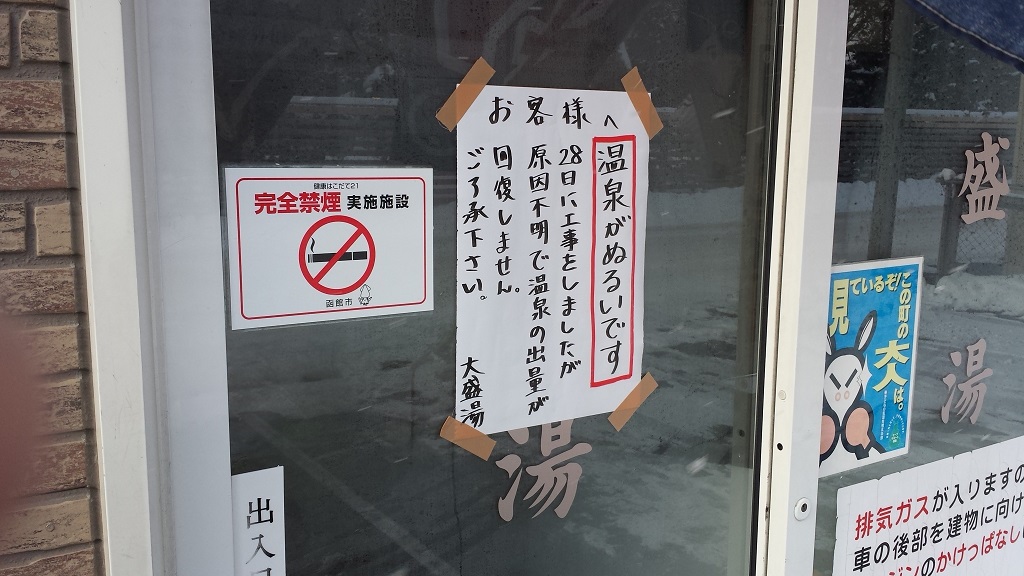 お客様へ
温泉がぬるいです
28日に工事をしましたが
原因不明で温泉の出量が
回復しません。
ご了承下さい。
大盛湯
健康はこだて21
完全禁煙 実施施設
函館市
湯
出入口
盛
湯
この町の大人は。
見ているぞ!
排気ガスが入りますの
車の後部を建物に向け
ジンのかけっぱなし